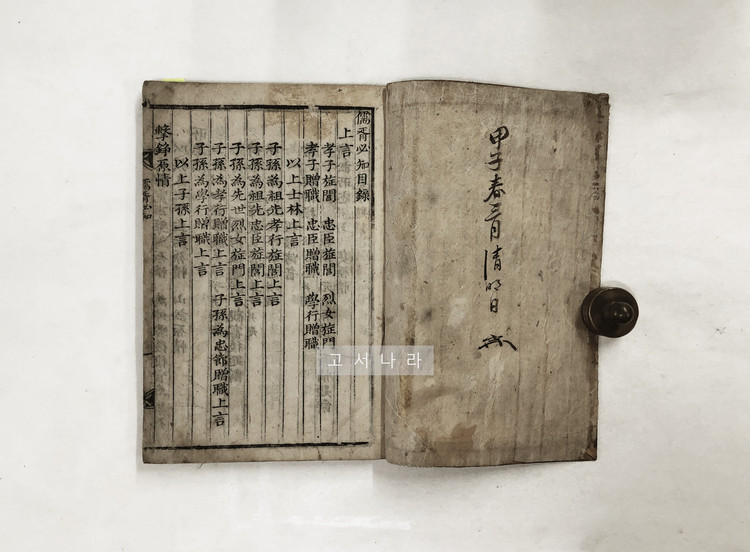 甲子春三月清明日
儒胥必知目錄
上言
孝子旌閭 忠臣旌閭 烈女旌門
孝子贈職 忠臣贈職 學行贈職
以上士林上言
子孫為祖先孝行旌閭上言
子孫為祖先忠臣旌閭上言
子孫為先世烈女旌門上言
子孫為孝行贈職上言 子孫為忠節贈職上言
子孫為學行贈職上言
以上子孫上言
擊錚原情
儒胥必知
고서나라